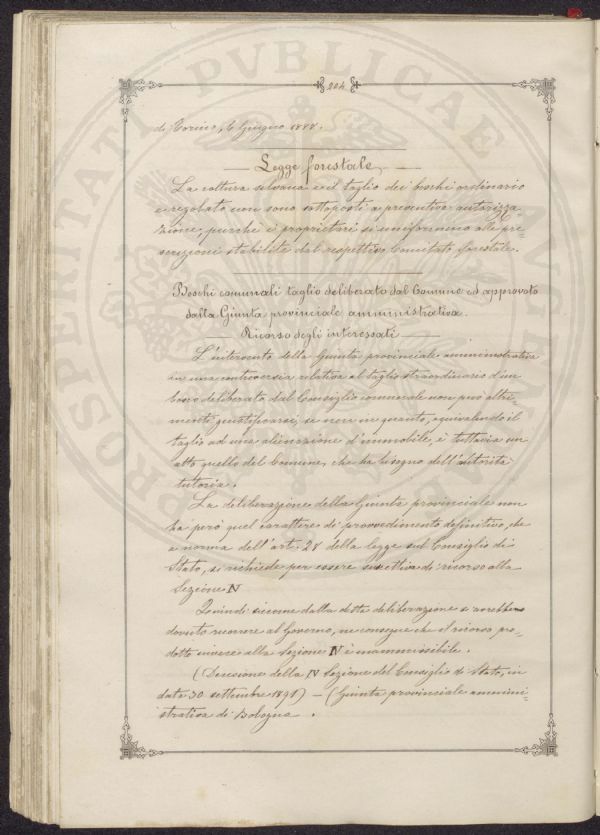 204
di Torino, 6 Giugno 1888.
Legge forestale
La coltura silvana e il taglio dei boschi ordinario
e regolato non sono sottoposti a preventiva autorizza-
zione, purchè i proprietari si uniformino alle pre-
scrizioni stabilite dal respettivo Comitato forestale.
Boschi comunali taglio deliberato dal Comune ed approvato
dalla Giunta provinciale amministrativa.
Ricorso degli interessati
L'intervento della Giunta provinciale amministrativa
in una controversia relativa al taglio straordinario d'un
bosco deliberato dal Consiglio comunale non può altri-
menti giustificarsi, se non in quanto, equivalendo il
taglio ad una alienazione d'immobile, è tuttavia un
atto quello del Comune, che ha bisogno dell'autorità
tutoria.
La deliberazione della Giunta provinciale non
ha però quel carattere di provvedimento definitivo, che
a norma dell'art. 28 della legge sul Consiglio di
Stato, si richiede per essere suscettiva di ricorso alla
Sezione IV
Quindi siccome dalla detta deliberazione si sarebbe
dovuto ricorrere al Governo, ne consegue che il ricorso pro-
dotto invece alla Sezione IV è inammissibile.
(Decisione della IV Sezione del Consiglio di Stato, in
data 30 settembre 1891) - (Giunta provinciale ammini-
strativa di Bologna.
PVBLICAE